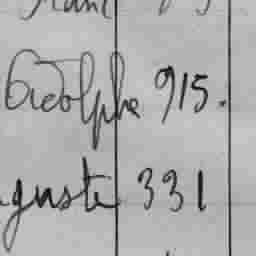 Adolphe 915.
guste 331